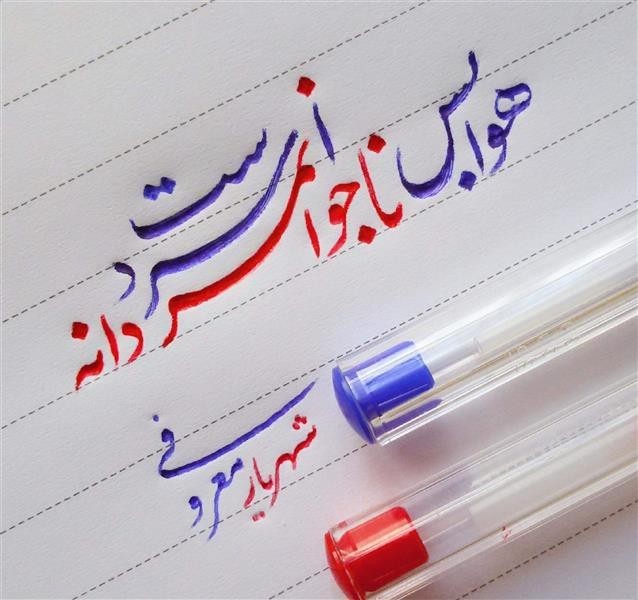 هوا بس ناجوانمردانه سرد است
شهریار معروفی